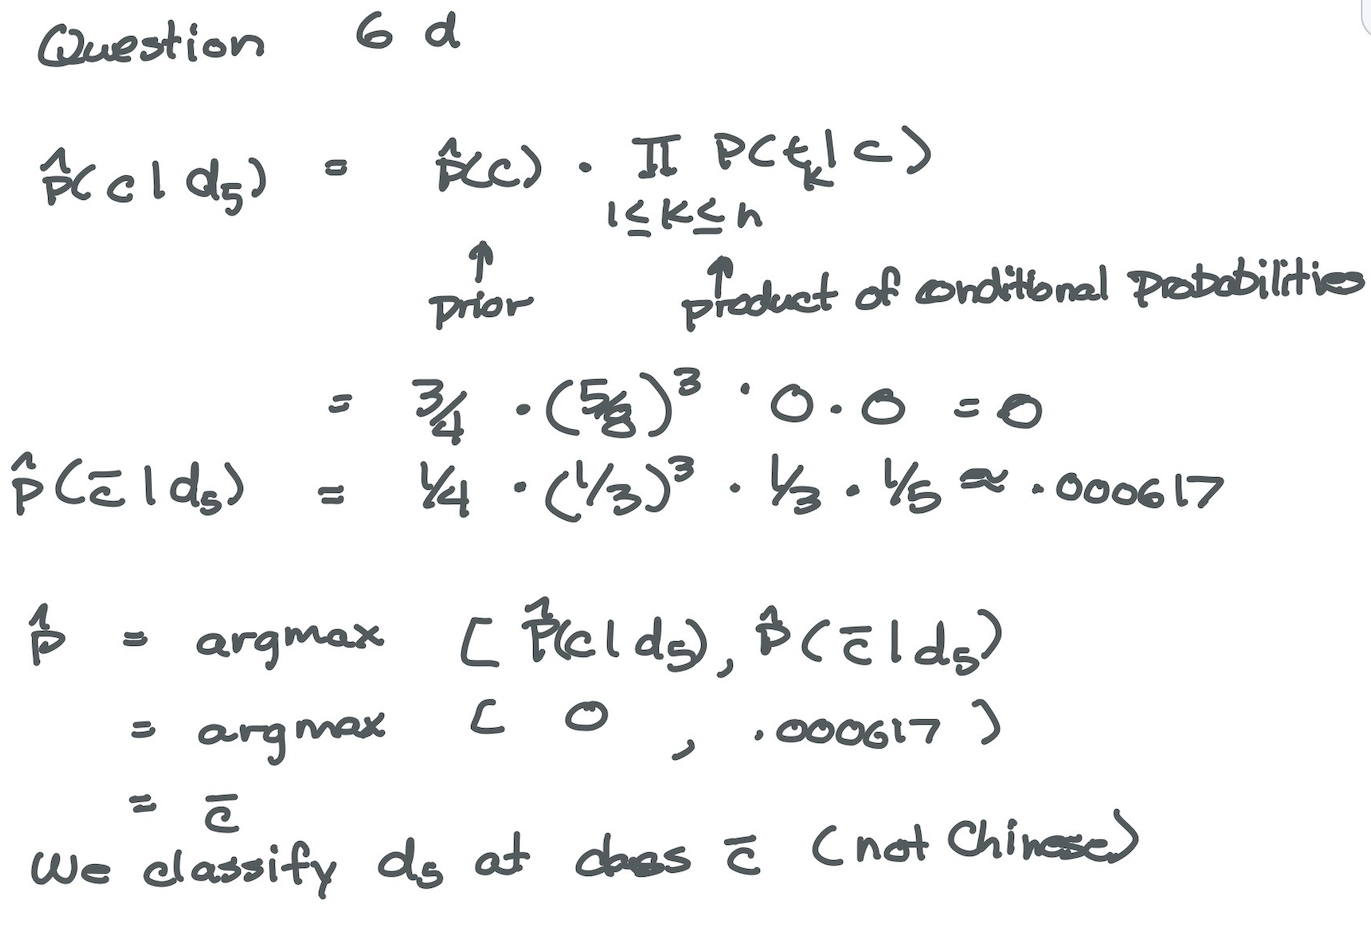 Question 6 d
p̂(c | d₅) = p̂(c) · Π P(tₖ | c)
1≤k≤n
↑ ↑
prior product of conditional probabilities
= 3/4 · (5/8)³ · 0 · 0 = 0
p̂(c̄ | d₅) = 1/4 · (1/3)³ · 1/3 · 1/5 ≈ .000617
p̂ = argmax [ p̂(c | d₅), p̂(c̄ | d₅)
= argmax [ 0 , .000617 )
= c̄
We classify d₅ at class c̄ (not Chinese)